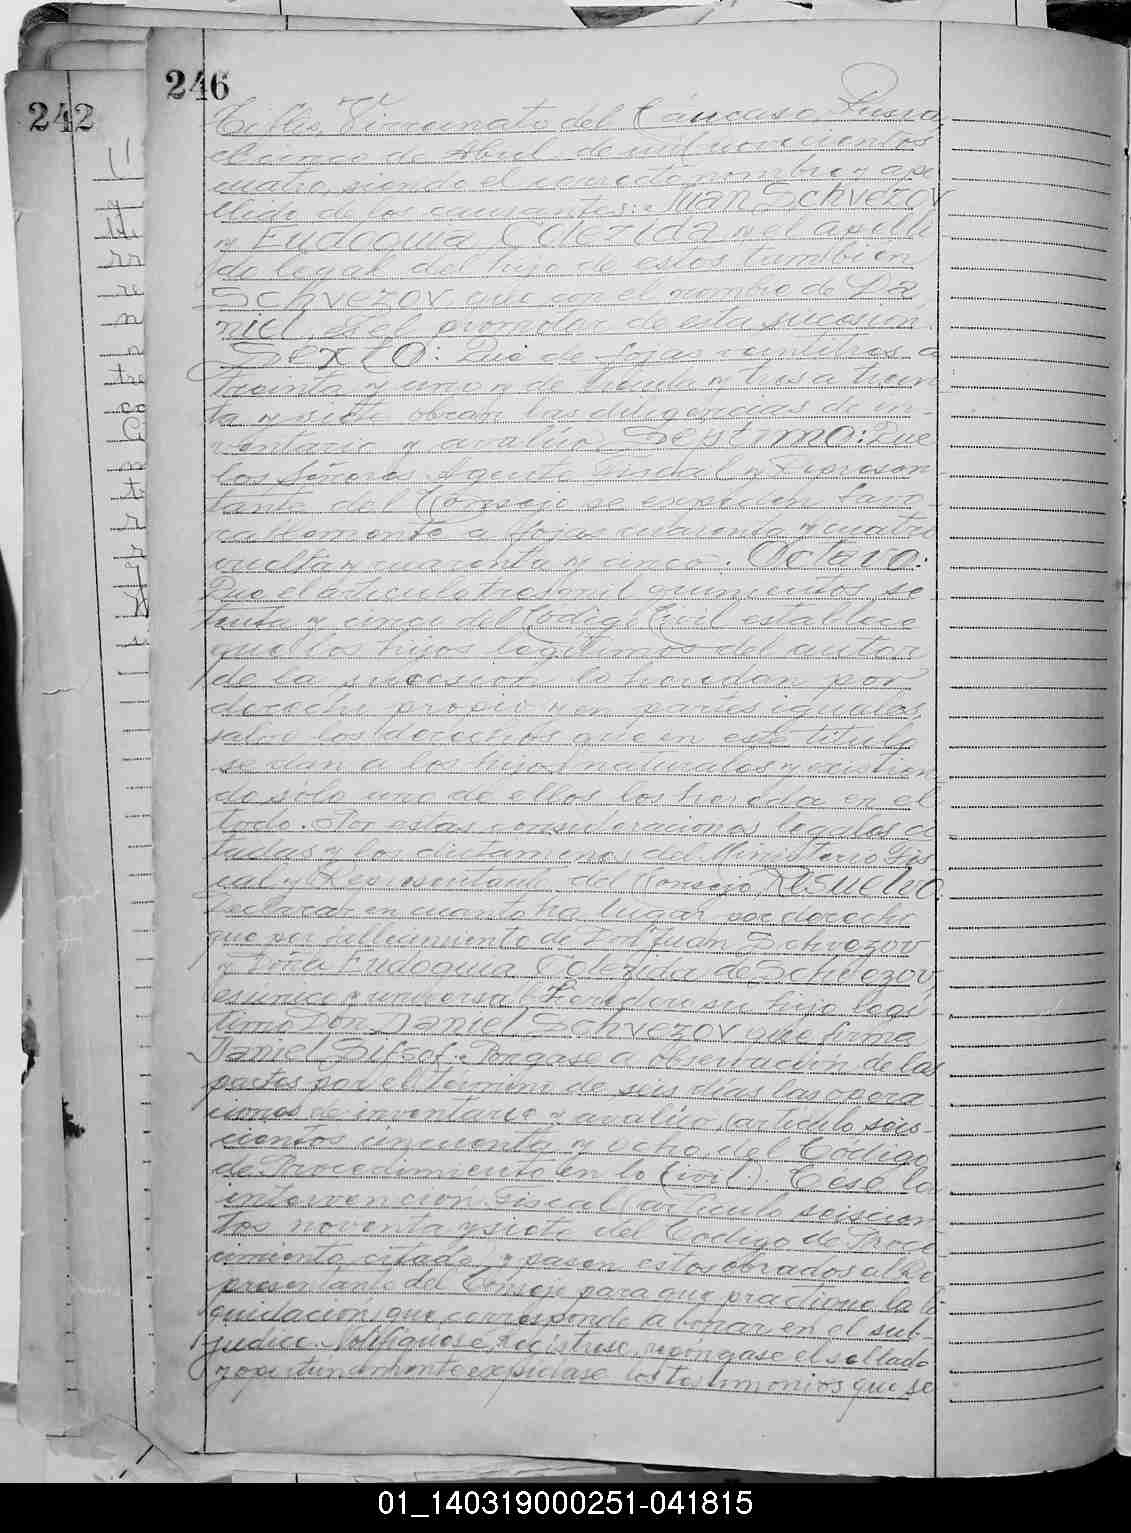 246
242
Tiflis, Virreinato del Cáucaso, Rusia,
el cinco de Abril de mil novecientos
cuatro, siendo el correcto nombre y ape
llido de los causantes: Juan Schvezov
y Eudoquia Coterida y el apelli
do legal del hijo de estos también
Schvezov, que con el nombre de Da
niel, es el promotor de esta sucesión.
Sexto: Que de fojas veintitres a
treinta y uno y de treinta y tres a trein
ta y siete obran las diligencias de in-
ventario y avalúo. Septimo: Que
los Señores Agente Fiscal y Represen
tante del Consejo se expiden favo
rablemente a fojas cuarenta y cuatro
vuelta y cuarenta y cinco. Octavo:
Que el artículo tres mil quinientos se
senta y cinco del Código Civil establece
que los hijos legítimos del autor
de la sucesión lo heredan por
derecho propio y en partes iguales,
salvo los derechos que en este título
se dan a los hijos naturales y existien
do sólo uno de ellos los hereda en el
todo. Por estas consideraciones legales ci
tadas y los dictámenes del Ministerio Fis
cal y Representante del Consejo, Resuelvo:
Declarar en cuanto ha lugar por derecho
que por fallecimiento de Don Juan Schvezov
y Doña Eudoquia Coterida de Schvezov,
es único y universal heredero su hijo legí-
timo Don Daniel Schvezov que firma
Daniel. Pongase a observación de las
partes por el término de seis días las opera
ciones de inventario y avalúo (artículo seis-
cientos cincuenta y ocho del Código
de Procedimiento en lo Civil). Cese la
intervención Fiscal (artículo seiscien
tos noventa y siete del Codigo de Proce
dimiento citado) y pasen estos obrados al Re
presentante del Consejo para que practique la li
quidación que corresponde abonar en el sub-
judice. Notifíquese, regístrese, repóngase el sellado
y oportunamente expídase los testimonios que se
01_140319000251-041815